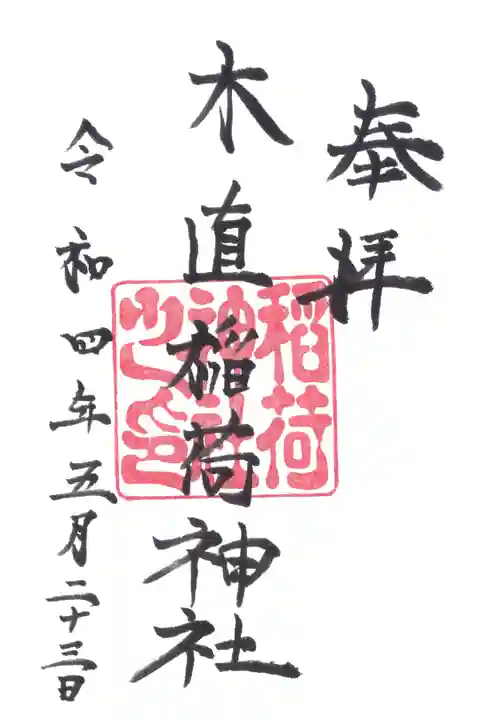 奉拝
木直稲荷神社
稲荷
神社
之印
令和四年五月二十三日